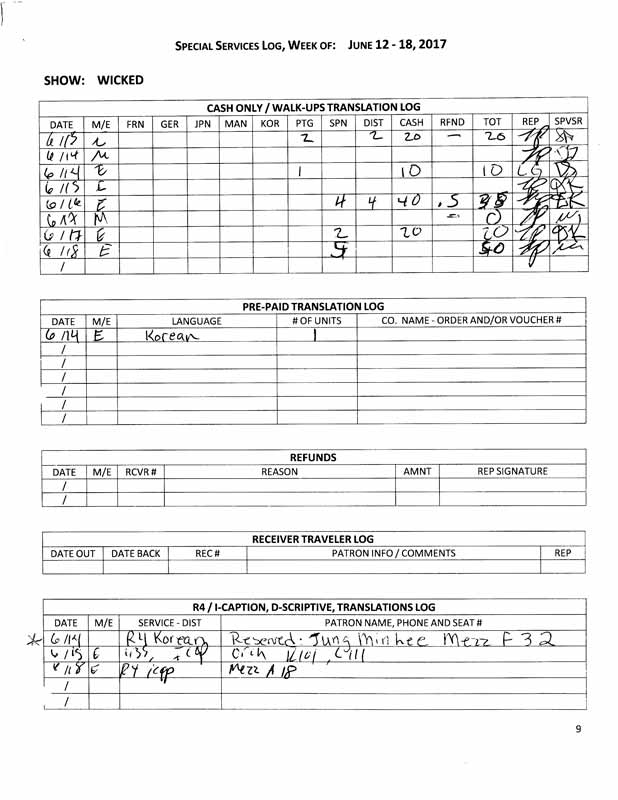 SPECIAL SERVICES LOG, WEEK OF: JUNE 12 - 18, 2017
SHOW: WICKED
CASH ONLY / WALK-UPS TRANSLATION LOG
DATE M/E FRN GER JPN MAN KOR PTG SPN DIST CASH RFND TOT REP SPVSR
6/13 2 2 20 – 20 TP
6/14 M TP
6/14 E 1 10 10 LG
6/15 E TP
6/16 E 4 4 40 .5 TP
6/17 M 0 TP
6/17 E 2 20 20 TP
6/18 E TP
/
PRE-PAID TRANSLATION LOG
DATE M/E LANGUAGE # OF UNITS CO. NAME - ORDER AND/OR VOUCHER #
6/14 E Korean 1
/
/
/
/
/
/
REFUNDS
DATE M/E RCVR # REASON AMNT REP SIGNATURE
/
/
RECEIVER TRAVELER LOG
DATE OUT DATE BACK REC # PATRON INFO / COMMENTS REP
R4 / I-CAPTION, D-SCRIPTIVE, TRANSLATIONS LOG
DATE M/E SERVICE - DIST PATRON NAME, PHONE AND SEAT #
* 6/14 R4 Korean Reserved - Jung Min hee Mezz F 32
6/15 E Orch
6/18 E R4 icap Mezz A 18
/
/
9